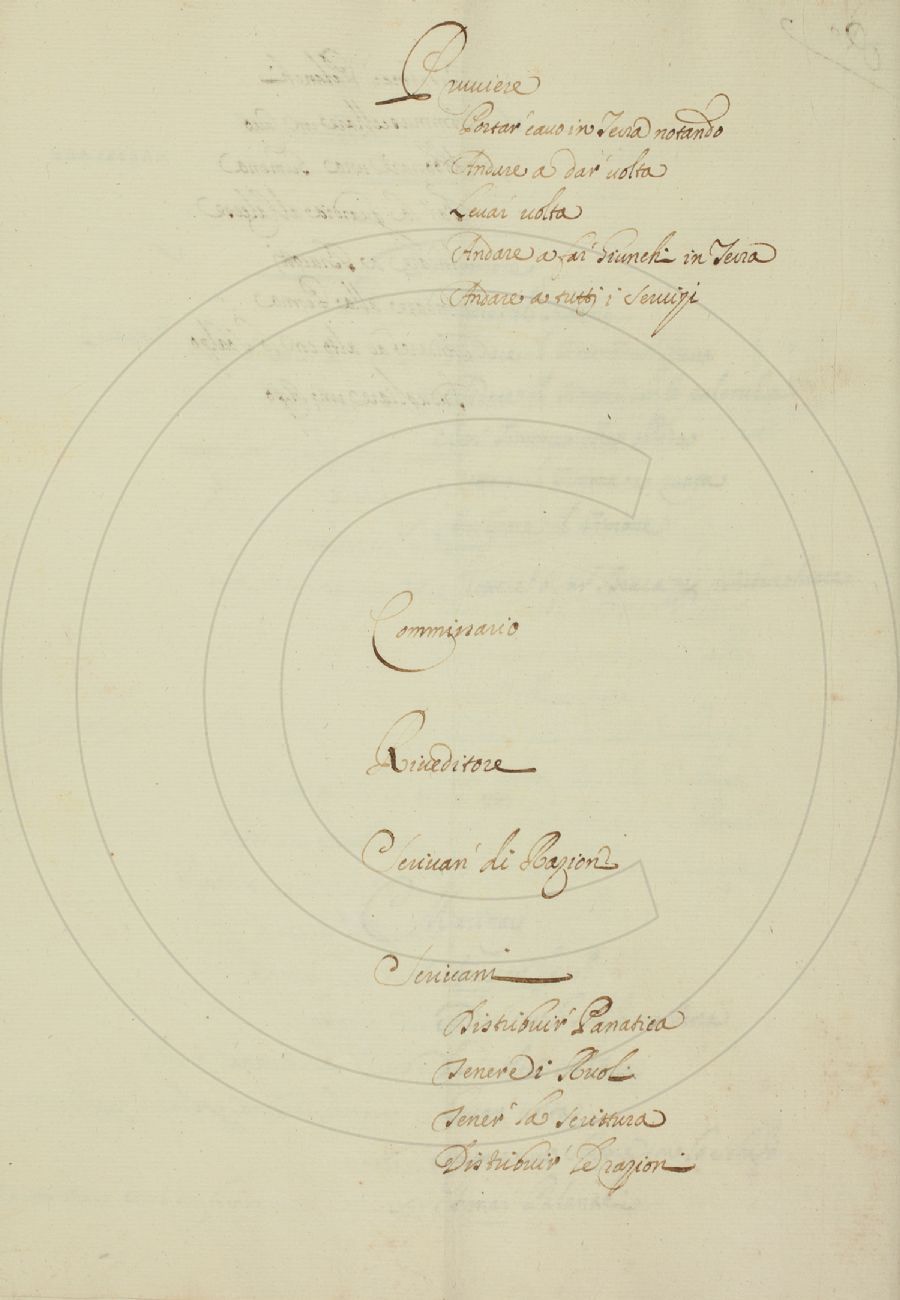 Pruuiere
Portar' cauo in Terra notando
Andare a dar' uolta
Leuar' uolta
Andare a far' Giunchi in Terra
Andare a tutti i seruizi
Commissario
Riueditore
Scriuan' di Razioni
Scriuani
Distribuir' Panatica
Tenere i Ruoli
Tener' la scrittura
Distribuir' le razioni